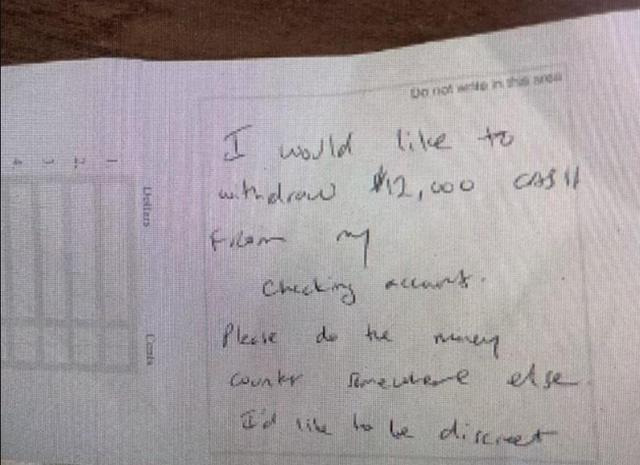 Do not write in this area
I would like to
withdraw $12,000 CASH
from my
checking account.
Please do the money
counter somewhere else.
I'd like to be discreet
Dollars
Cents
1
2
3
4